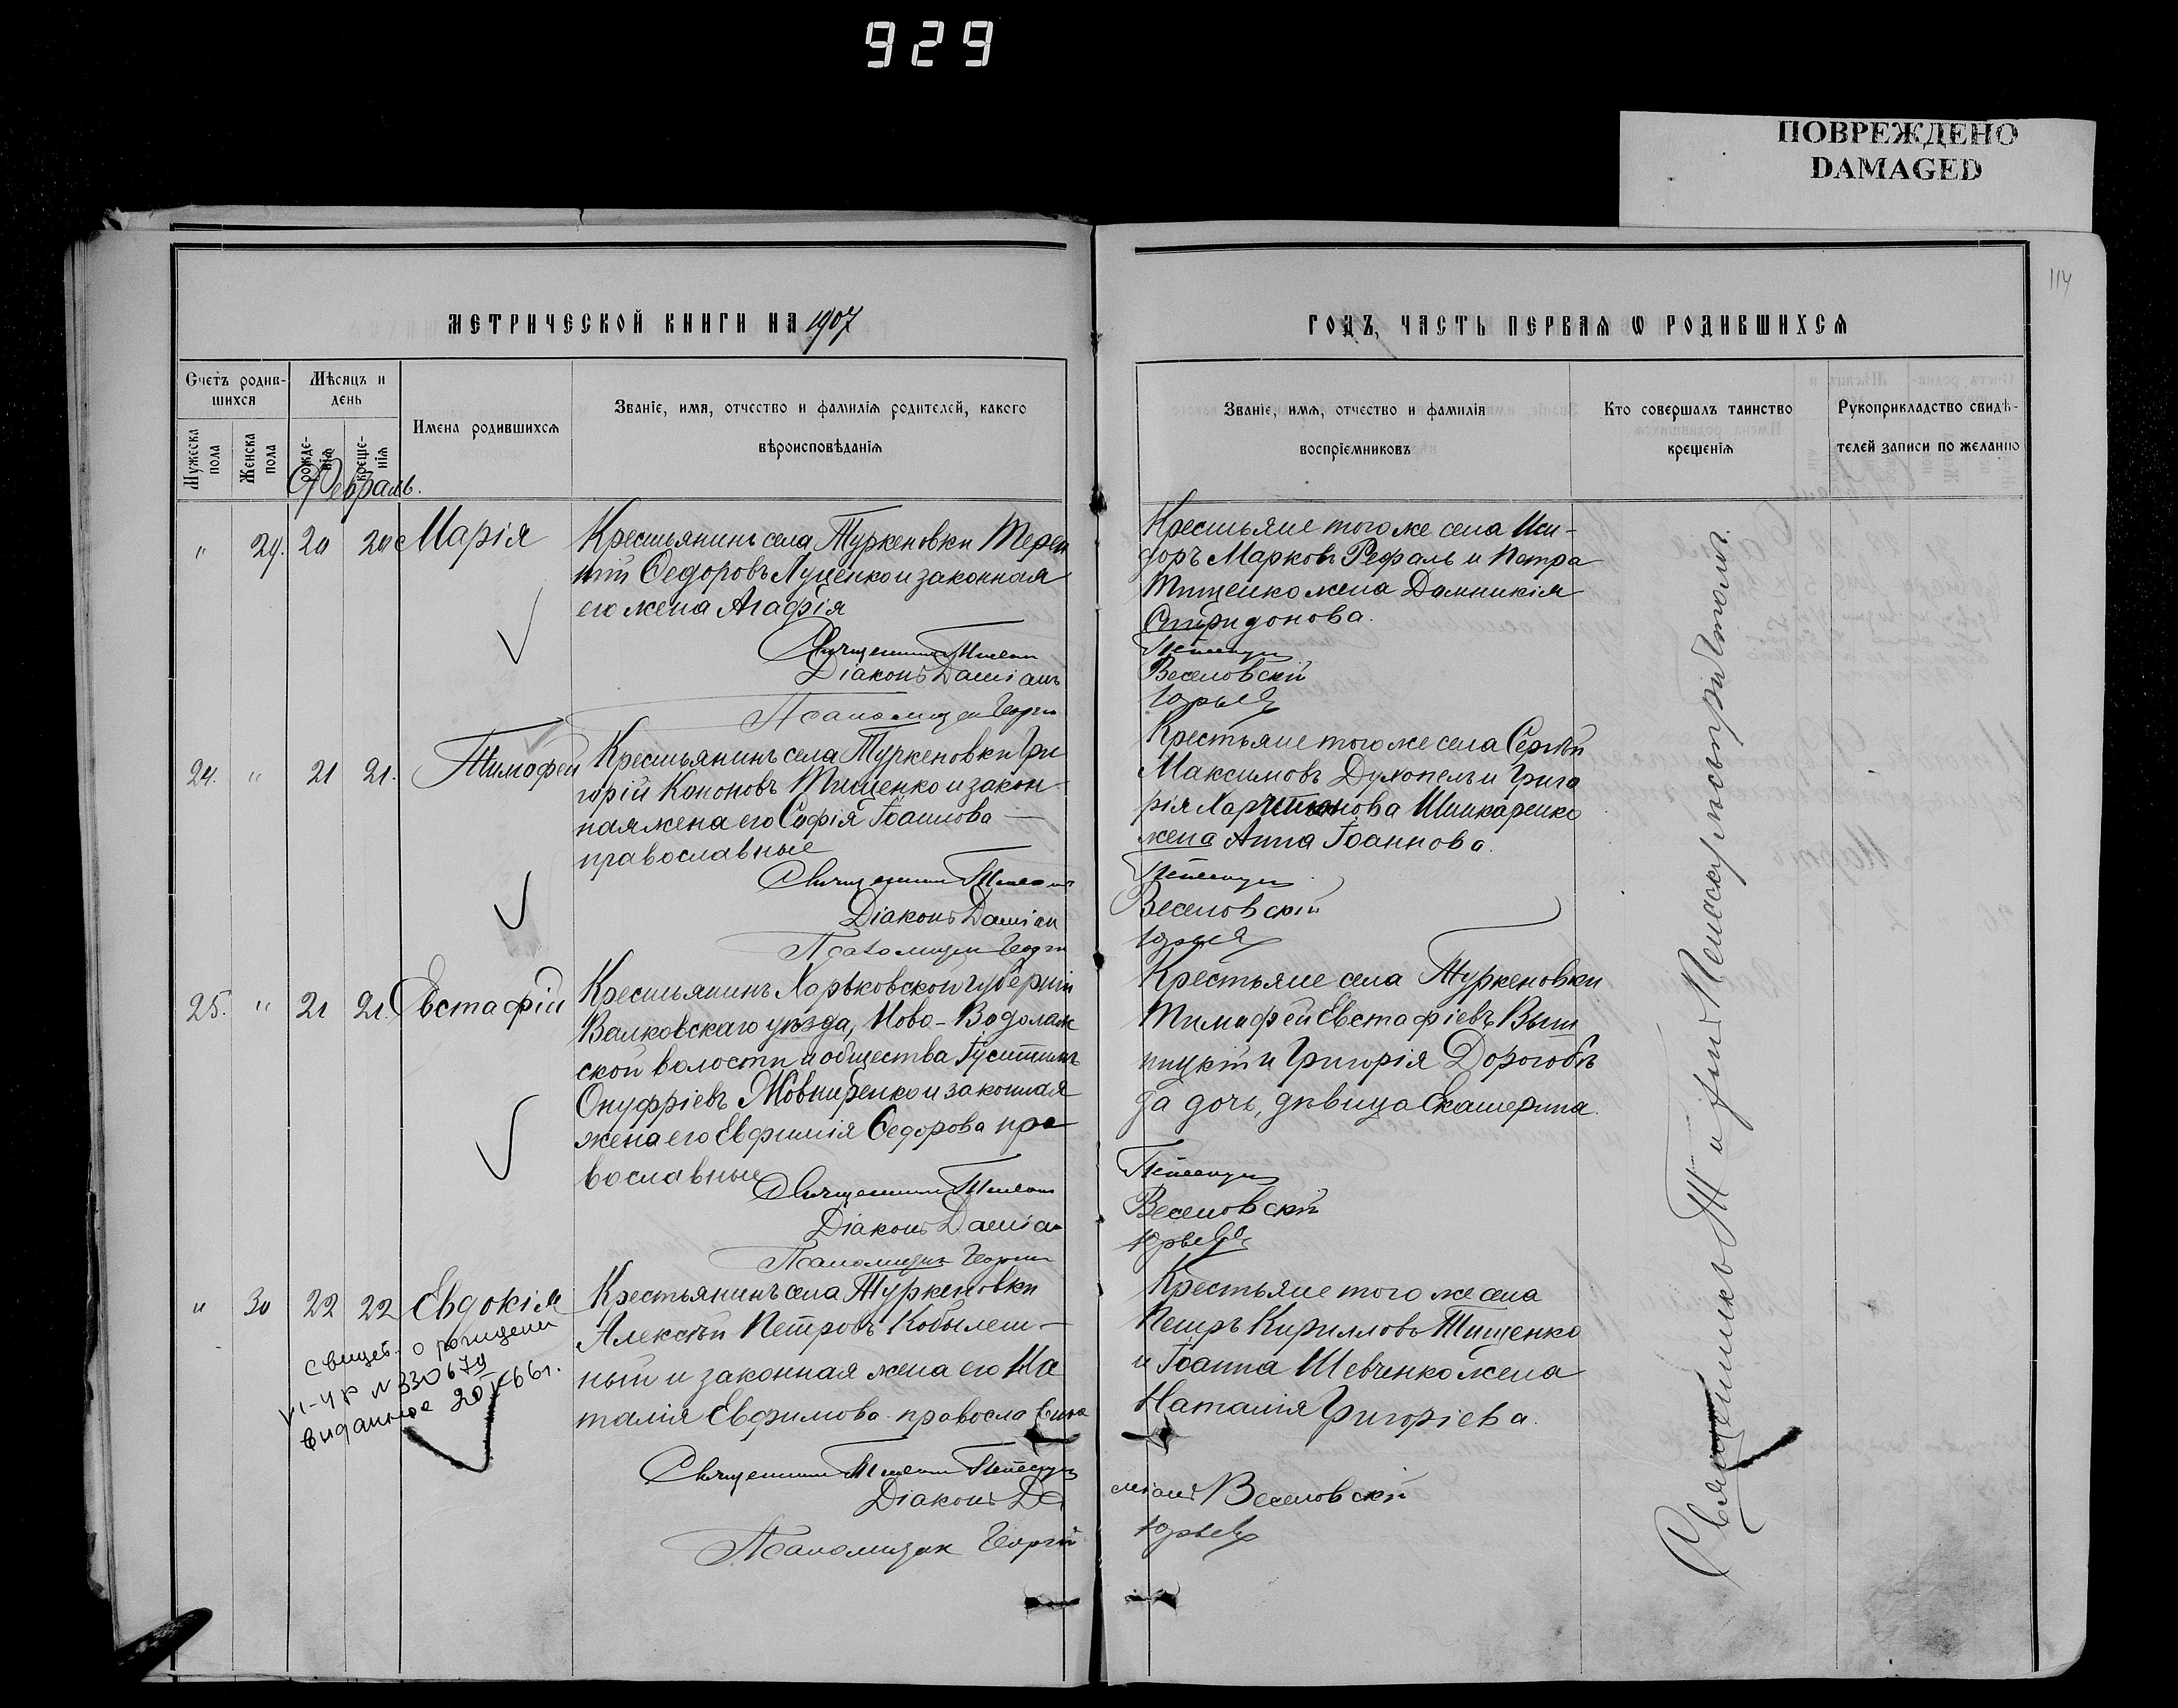 929
ПОВРЕЖДЕНО
DAMAGED
114
МЕТРИЧЕСКОЙ КНИГИ НА 1907
ГОДЪ, ЧАСТЬ ПЕРВАЯ Ѡ РОДИВШИХСЯ
Счетъ родив-
шихся
Мѣсяцъ и
день
Имена родившихся
Званіе, имя, отчество и фамилія родителей, какого
вѣроисповѣданія
Мужеска
пола
Женска
пола
рожде-
нія
креще-
нія
Февраль.
Званіе, имя, отчество и фамилія
воспріемниковъ
Кто совершалъ таинство
крещенія
Рукоприкладство свидѣ-
телей записи по желанію
" 29. 20 20 Марія
Крестьянинъ села Туркеновки Терен
тій Ѳедоровъ Луценко и законная
его жена Агафія
Священникъ
Діаконъ Даміанъ
Псаломщик Георгій
Крестьяне того же села Иси-
доръ Марковъ Рефаль и Петра
Тищенко жена Домникія
Спиридонова.
Веселовскій
Юрьевъ
24. " 21 21. Тимофей
Крестьянинъ села Туркеновки Гри
горій Кононовъ Тищенко и закон-
ная жена его Софія Іоаннова
православные
Священникъ
Діаконъ Даміан
Псаломщик Георгій
Крестьяне того же села Сергѣй
Максимовъ Духопелъ и Григо
рія Харитонова Шинкаренко
жена Анна Іоаннова.
Веселовскій
Юрьевъ
25. " 21 21. Евстафій
Крестьянинъ Харьковской губерніи
Валковскаго уѣзда, Ново-Водолаж
ской волости и общества Іустинъ
Онуфріевъ Жовниренко и законная
жена его Евфимія Ѳедорова пра
вославные
Священникъ
Діаконъ Даміа
Псаломщикъ Георгій
Крестьяне села Туркеновки
Тимофей Евстафіевъ Выш
ницкій и Григорія Дорогобѣ
да дочь, дѣвица Екатерина.
Веселовскій
Юрьевъ
" 30 22 22 Евдокія
свидет. о рождении
VI-ЧР N 330679
выданное 20/V 66 г.
Крестьянинъ села Туркеновки
Алексѣй Петровъ Кобылеш-
ный и законная жена его На
талія Евфимова православные
Священникъ
Діаконъ Да
Псаломщик Георгій
Крестьяне того же села
Петръ Кирилловъ Тищенко
и Іоанна Шевченко жена
Наталія Григоріева.
міанъ Веселовскій
Юрьевъ
Священникъ